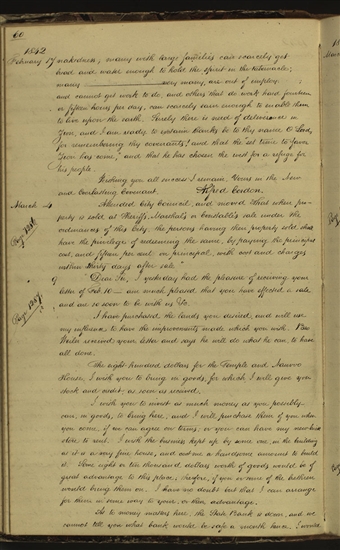 60
1842
February 17 nakedness; many with large families can scarcely get
bread and water enough to hold the spirit in the tabernacle;
many very many, are out of employ
and cannot get work to do, and others that do work hard fourteen
or fifteen hours per day, can scarcely earn enough to enable them
to live upon the earth. Surely there is need of deliverance in
Zion, and I am ready to exclaim thanks be to thy name O Lord,
for remembering thy covenants; and that the set time to favor
Zion has come; and that he has chosen the west for a refuge for
his people.
Wishing you all success I remain, Yours in the New
and Everlasting Covenant,
Alfred Cordon.
March 4 Attended City Council, and moved that when pro-
perty is sold at Sheriff's, Marshal's or Constable's sale under the
ordinances of this City, the persons having their property sold shall
have the privilege of redeeming the same, by paying the principal
cost, and fifteen per cent on principal, with cost and charges
within thirty days after sale.
Dear Sir, I yesterday had the pleasure of receiving your
letter of Feb 10 — am much pleased that you have effected a sale
and are so soon to be with us &c.
I have purchased the lands you desired, and will use
my influence to have the improvements made which you wish. Bro
Weiler received your letter and says he will do what he can, to have
all done.
The eight hundred dollars for the Temple and Nauvoo
House, I wish you to bring in goods, for which I will give you
stock and credit as soon as received.
I wish you to invest as much money as you possibly
can, in goods, to bring here, and I will purchase them of you when
you come, if we can agree on terms; or you can have my new brick
store to rent. I wish the business kept up by some one in the building
as it is a very fine house, and cost me a handsome amount to build
it. Some eight or ten thousand dollars worth of goods would be of
great advantage to this place, therefore, if you or some of the brethren
would bring them on. I have no doubt but that I can arrange
for them in some way to your, or their advantage.
As to money matters here, the State Bank is down, and we
cannot tell you what bank would be safe a month hence. I would